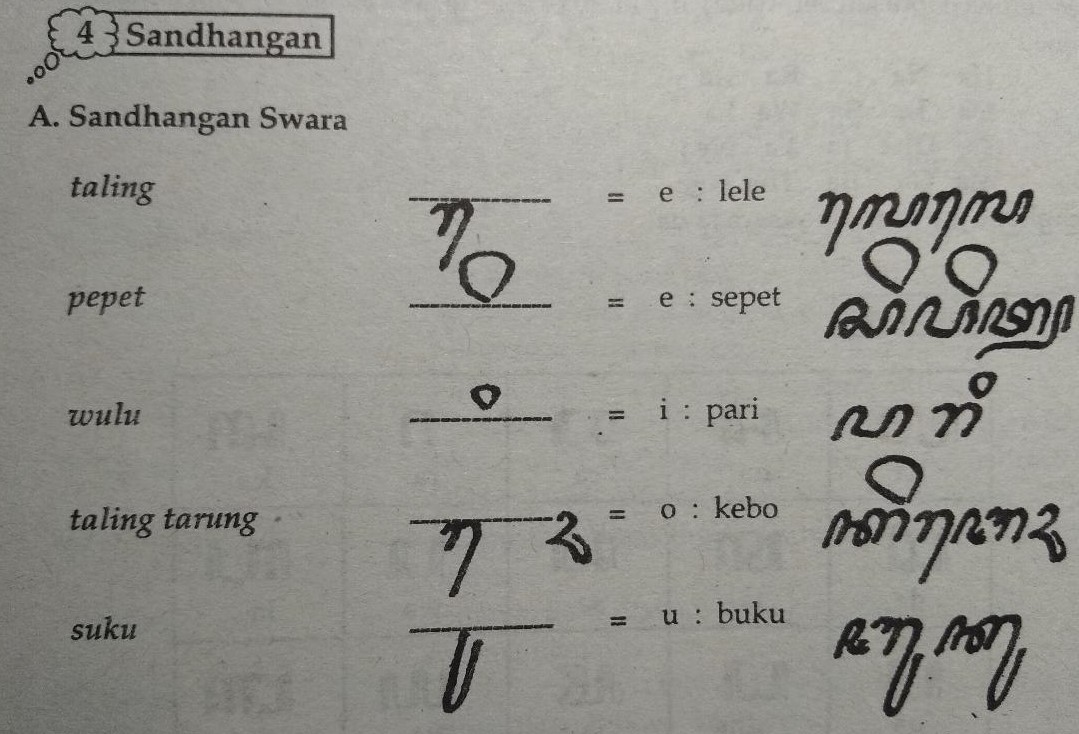 4 Sandhangan
A. Sandhangan Swara
taling ꦺ = e : lele ꦭꦺꦭꦺ
pepet ꦼ = e : sepet ꦱꦼꦥꦼꦠ꧀
wulu ꦶ = i : pari ꦥꦫꦶ
taling tarung ꦺ ꦴ = o : kebo ꦏꦼꦧꦺꦴ
suku ꦸ = u : buku ꦧꦸꦏꦸ